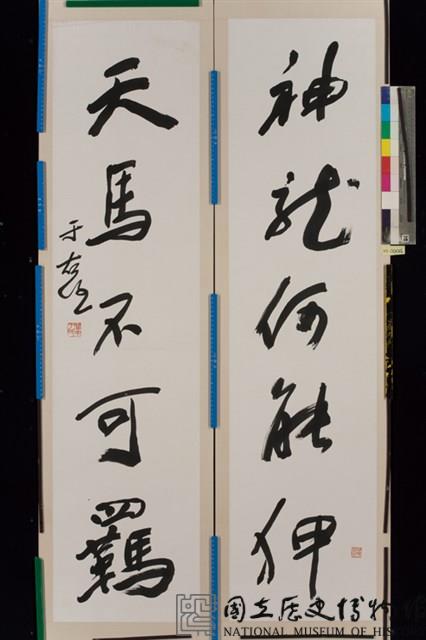 神龍何能狎
天馬不可羈
于右任
國立歷史博物館
NATIONAL MUSEUM OF HIS